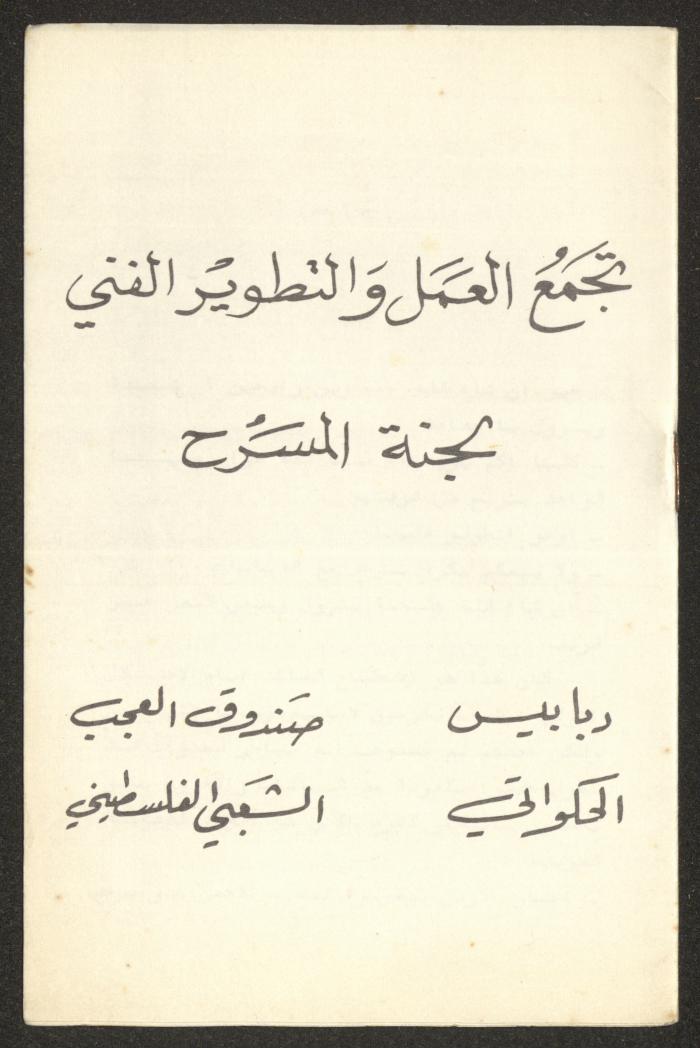 تجَمُّعُ العَمَل وَالتطويْر الفني
لجنة المسَرح
دبابيس صَندوق العجب
الحكواتي الشعَبي الفلسطيني